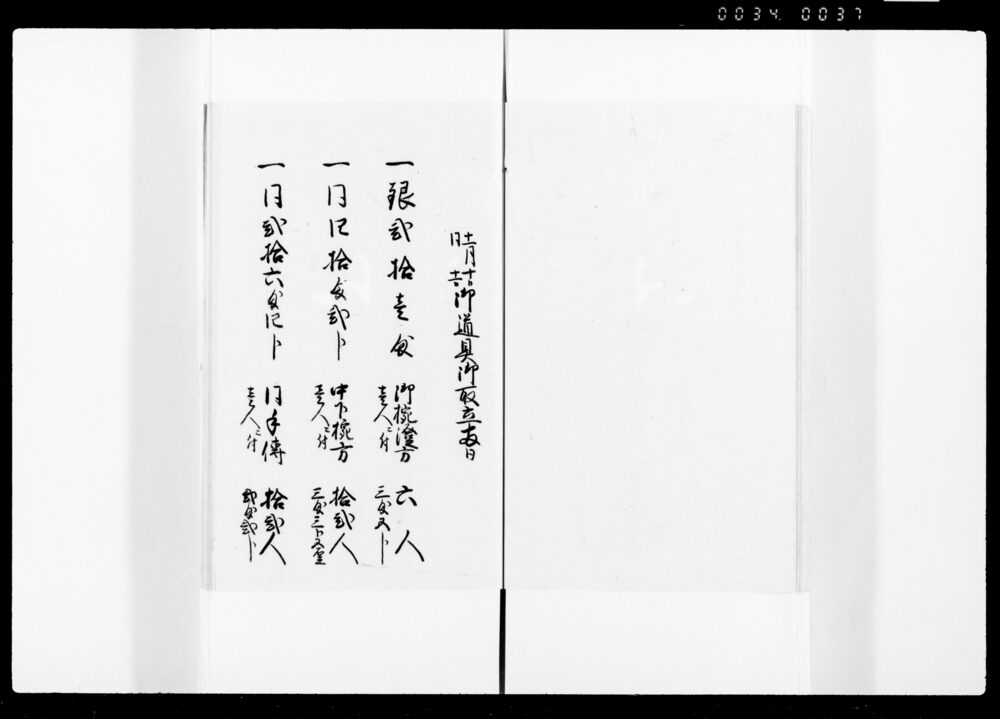 0034. 0037
御道具御取立両日
一銀弐拾壱匁
御椀澄方 六人
壱人ニ付 三匁五分
一同四拾匁弐分
中下椀方 拾弐人
壱人ニ付 三匁三分五厘
一同弐拾六匁四分
同手傳 拾弐人
壱人ニ付 弐匁弐分